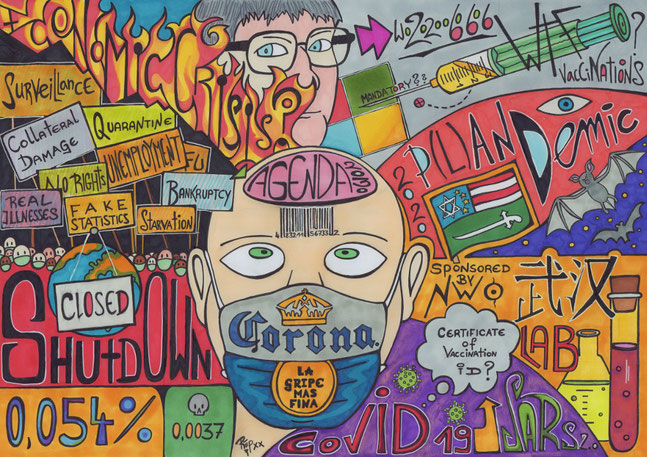 ECONOMIC CRISIS?
WO2020060606
WTF?
VACCINATIONS
MANDATORY??
SURVEILLANCE
COLLATERAL
DAMAGE
QUARANTINE
UNEMPLOYMENT
FU
NO RIGHTS
BANKRUPTCY
REAL
ILLNESSES
FAKE
STATISTICS
STARVATION
AGENDA 2030
P(L)AN
DEMIC
2020
SPONSORED
BY
NWO
武汉
LAB
CLOSED
SHUTDOWN
Corona.
LA
GRIPE
MAS
FINA
CERTIFICATE
OF
VACCINATION
iD?
0,054%
0,0037
COVID 19
SARS